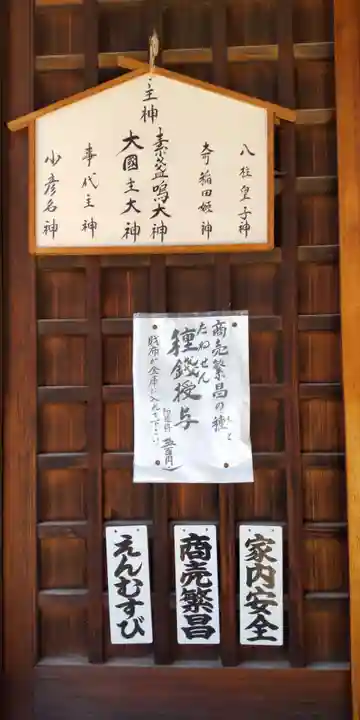 主神
八柱皇子神
奇稲田姫神
素盞嗚大神
大國主大神
事代主神
少彦名神
商売繁昌の種
たねせん
種錢授与
財布か金庫に入れて下さい
家内安全
商売繁昌
えんむすび